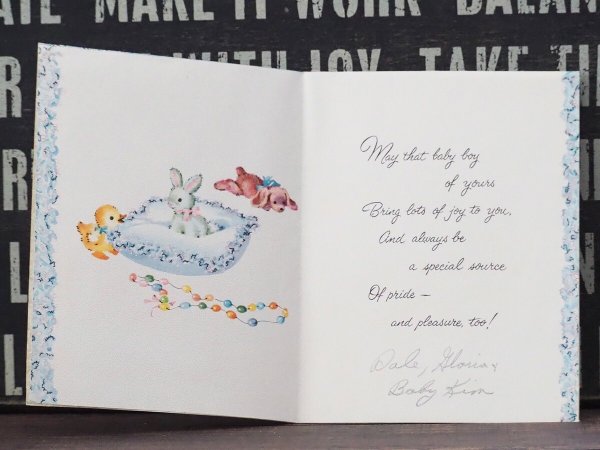 ATE MAKE IT WORK BALAN
WITH JOY TAKE
May that baby boy
of yours
Bring lots of joy to you,
And always be
a special source
Of pride —
and pleasure, too!
Dale, Gloria &
Baby Kim